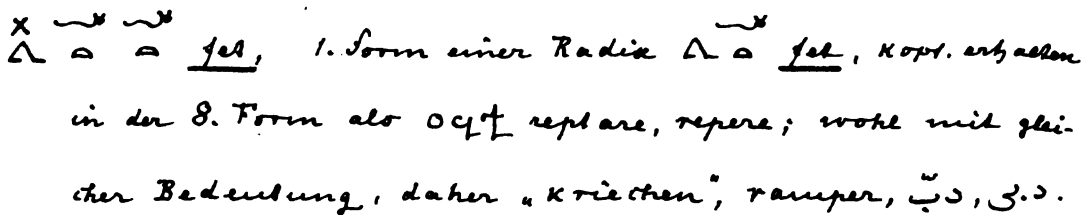 fet, 1. Form einer Radix fet, kopt. erhalten
in der 8. Form als ⲟϥϯ reptare, repere; wohl mit glei-
cher Bedeutung, daher „kriechen", ramper,